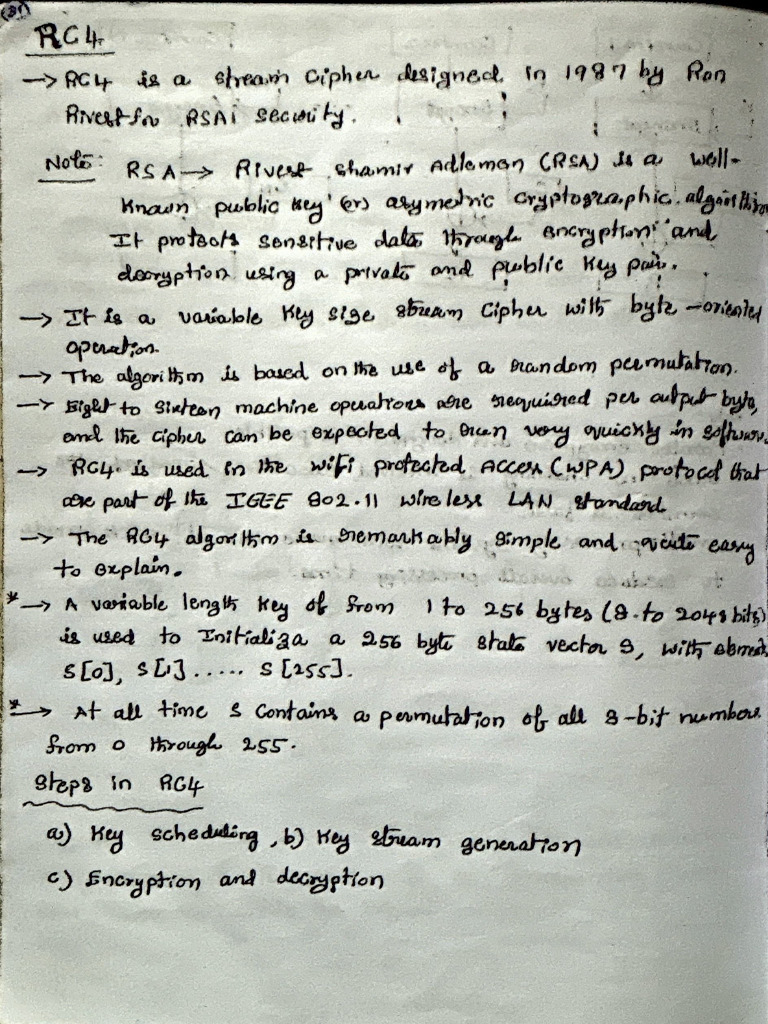 (31)
RC4
→ RC4 is a stream cipher designed in 1987 by Ron
Rivest for RSAi security.
Note: RSA → Rivest Shamir Adleman (RSA) is a well-
known public key (or) asymetric cryptographic algorithm
It protects sensitive data through encryption and
decryption using a private and public key pair.
→ It is a variable key size stream cipher with byte-oriented
operation.
→ The algorithm is based on the use of a random permutation.
→ Eight to sixteen machine operations are required per output byte,
and the cipher can be expected to run very quickly in software.
→ RC4 is used in the wifi protected Access (WPA) protocol that
are part of the IEEE 802.11 wireless LAN standard
→ The RC4 algorithm is remarkably simple and quite easy
to explain.
* → A variable length key of from 1 to 256 bytes (8 to 2048 bits)
is used to Initializa a 256 byte state vector S, with elements
S[0], S[1] ..... S[255].
* → At all time S contains a permutation of all 8-bit numbers
from 0 through 255.
Steps in RC4
a) Key scheduling, b) Key stream generation
c) Encryption and decryption